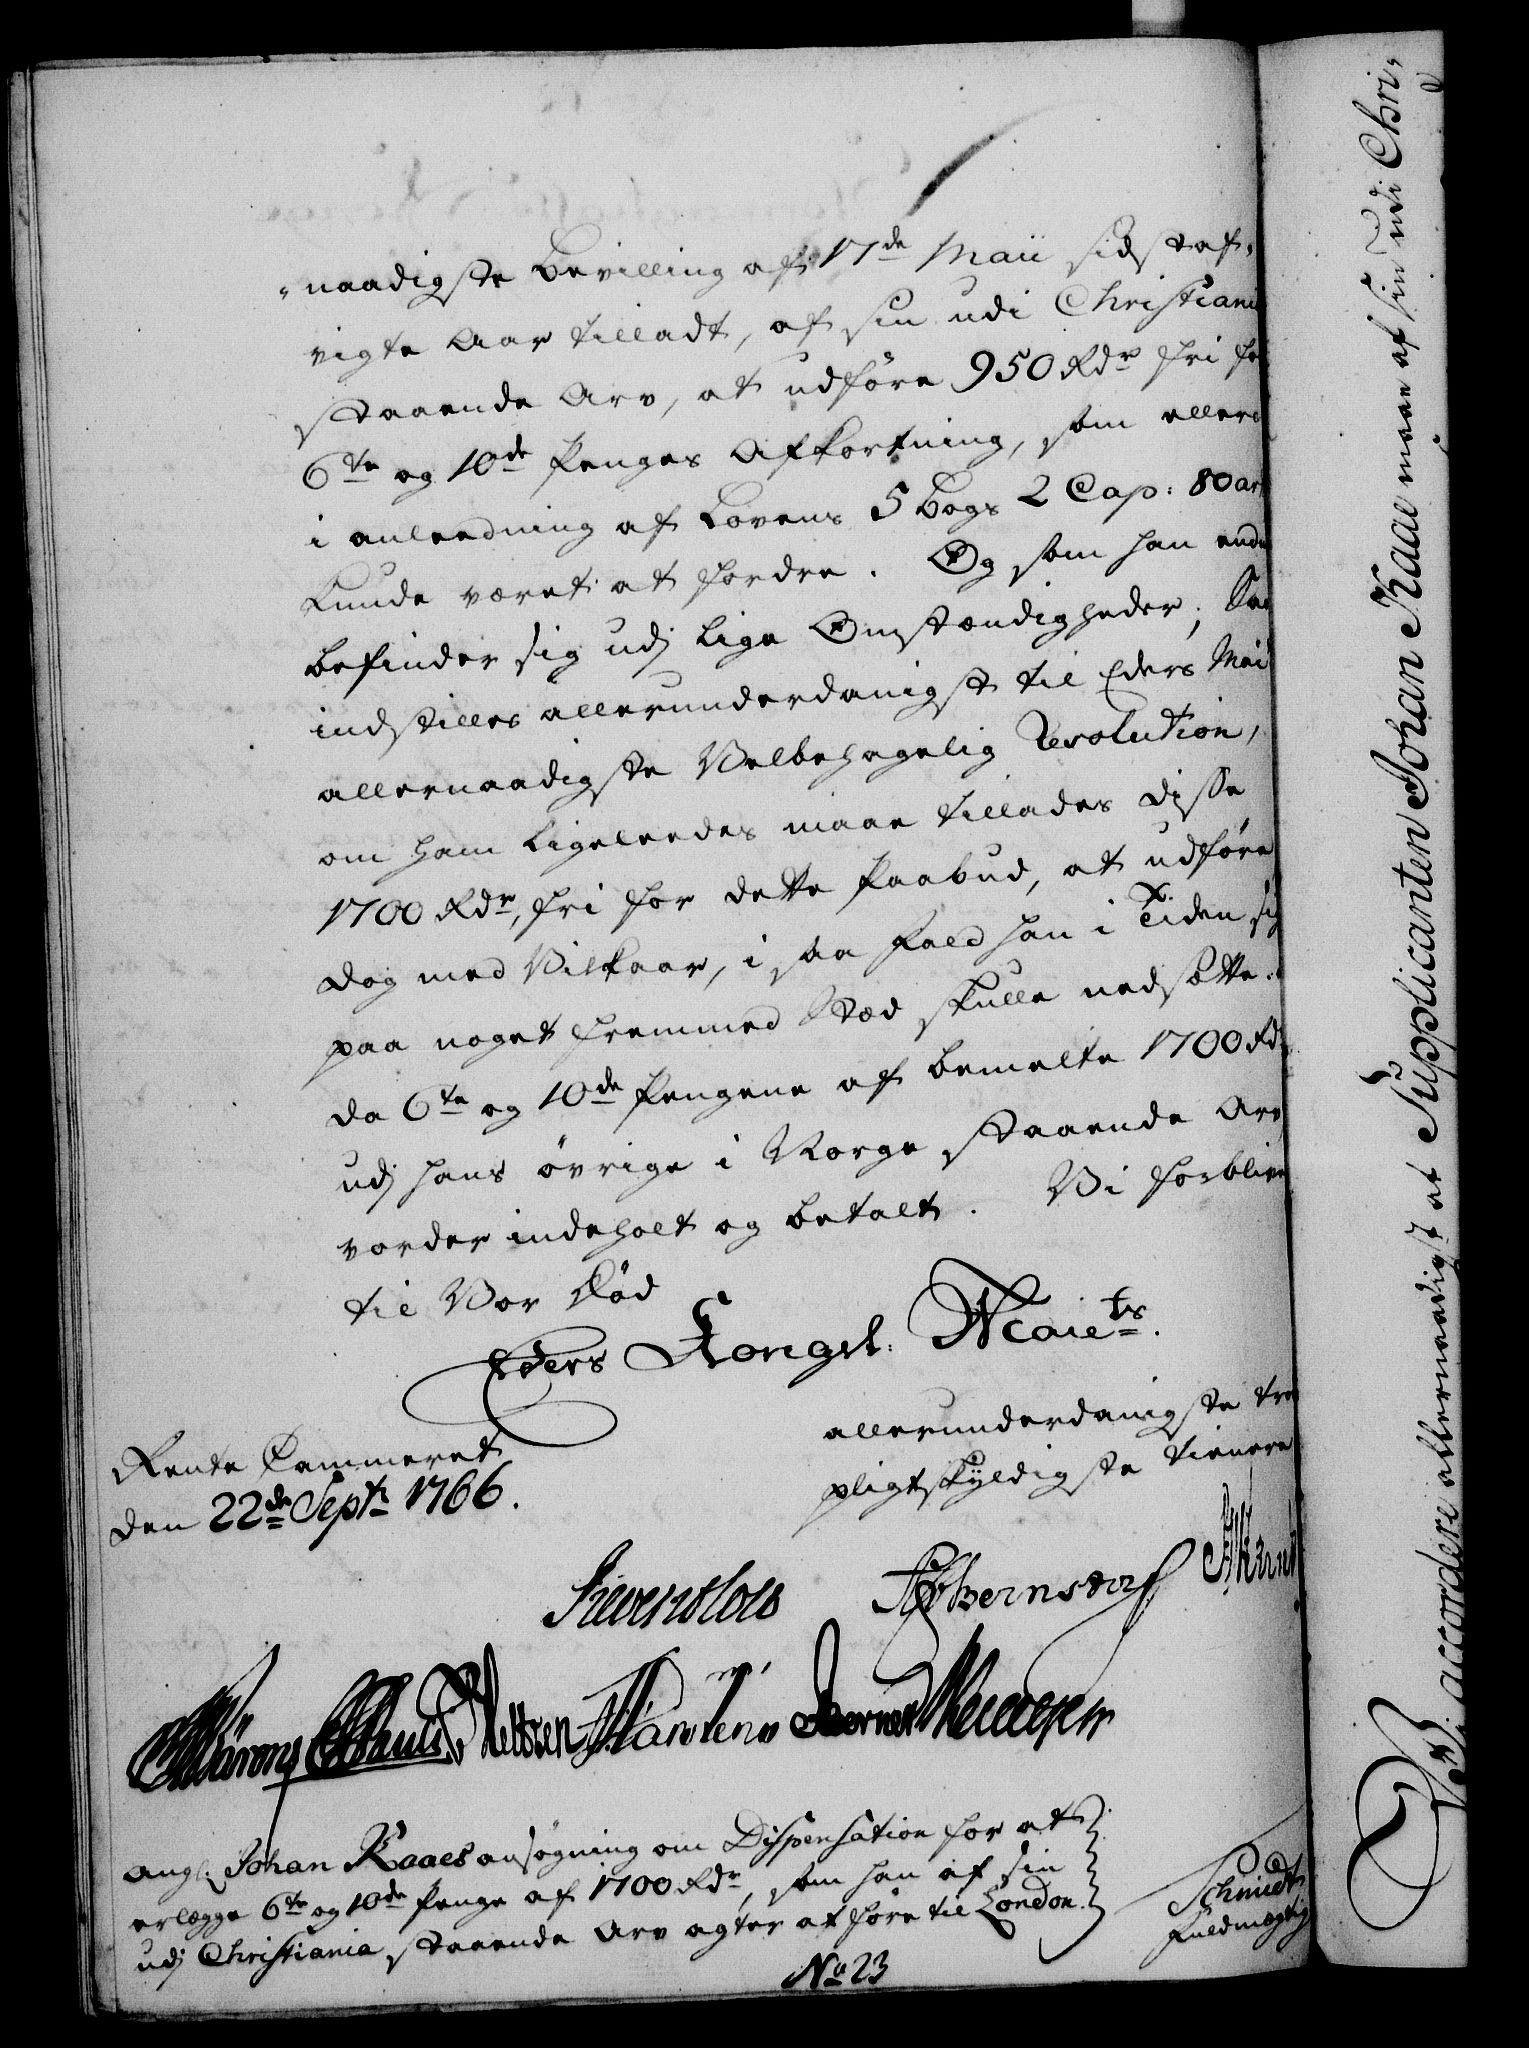 "naadigste Bevilling af 17de Maii sidstaf,
vigte Aar tilladt, af sin udi Christiania
staaende Arv, at udføre 950 Rdr fri for
6te og 10de Penges Afkortning, som ellers
i anleedning af Lovens 5 Bogs 2 Cap: 80 art
kunde været at fordre. Og som han endnu
befinder sig udj lige Omstændigheder; Saa
indstilles allerunderdanigst til Eders Mai
allernaadigste Velbehagelig Resolution,
om ham ligeleedes maae tillades disse
1700 Rdr, fri for dette Paabud, at udføre
dog med Vilkaar, i saa Fald han i Tiden sig
paa noget fremmed Stæd skulle nedsætte,
da 6te og 10de Pengene af bemelte 1700 Rdr
udj hans øvrige i Norge staaende Arv
vorder indeholt og betalt. Vi forblive
til Vor Død
Eders Kongel: Maiets.
allerunderdanigste troe
pligtskyldigste tienere
Rente Cammeret
den 22de Septr 1766.
Bernstorf
Ang: Johan Kaaes ansøgning om Dispensation for at
erlægge 6te og 10de Penge af 1700 Rdr, som han af sin
udj Christiania staaende Arv agter at føre til London.
Schmidt
Fuldmægtig
No 23
Vi accordere allernaadigst at Supplicanten Johan Kaae maae af sin udi Chri-